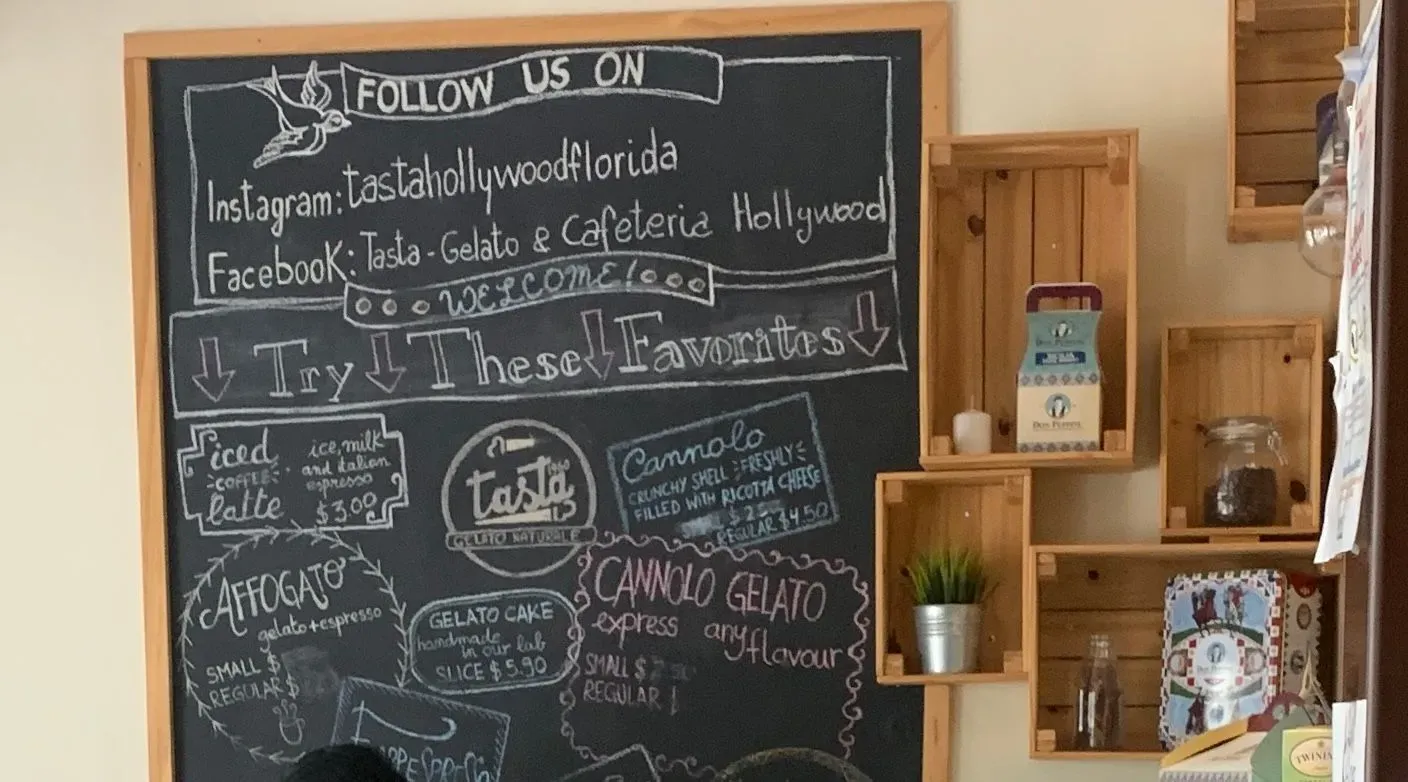 FOLLOW US ON
Instagram: tastahollywoodflorida
Facebook: Tasta - Gelato & Cafeteria Hollywood
WELCOME!
Try These Favorites
iced
COFFEE
latte
ice, milk
and italian
espresso
$3.00
tasta
GELATO NATURALE
Cannolo
CRUNCHY SHELL FRESHLY
FILLED WITH RICOTTA CHEESE
REGULAR $4.50
AFFOGATO
gelato+espresso
SMALL $
REGULAR $
GELATO CAKE
handmade
in our lab
SLICE $5.90
CANNOLO GELATO
express any flavour
SMALL $
REGULAR
DON PEPPINU
TWININ